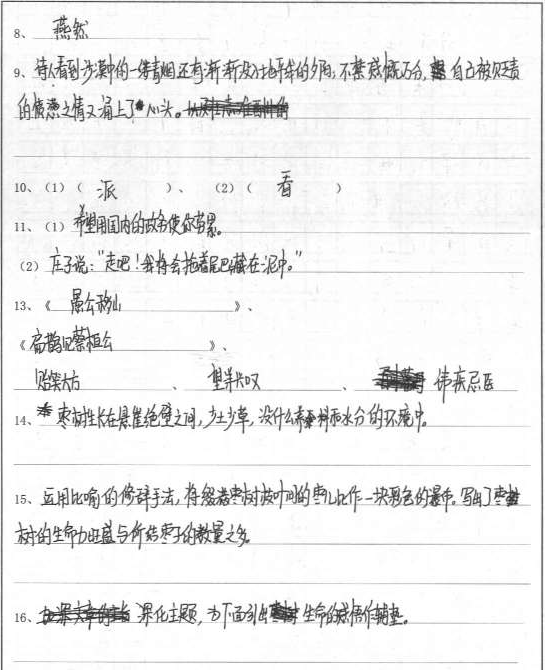 8、 燕然
9、诗人看到沙漠中的一缕青烟还有渐渐没入地平线的夕阳,不禁感慨万分,自己被贬责
的愤懑之情又涌上了心头。
10、(1)( 派 )、 (2)( 看 )
11、(1) 希望用国内的政务使你劳累。
(2) 庄子说:“走吧!我将会拖着尾巴藏在泥中。”
13、《 愚公移山 》、
《 扁鹊见蔡桓公 》、
贻笑大方 、 望洋兴叹 、 讳疾忌医
14、枣树生长在悬崖绝壁之间,少土少草,没什么养料和水分的环境中。
15、运用比喻的修辞手法,将缀着枣树枝叶间的枣儿比作一块彩色的瀑布。写出了枣
树的生命力旺盛与所结枣子的数量之多。
16、深化主题,为下面引出生命的感悟作铺垫。